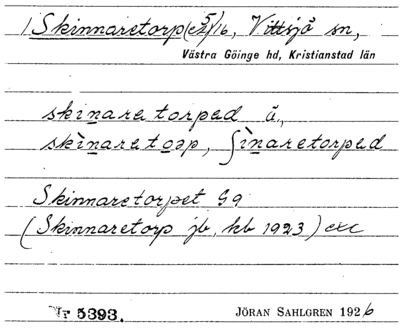 1 Skinnaretorp 5/16, Vittsjö sn,
Västra Göinge hd, Kristianstad län
skinaretorped ä.,
skìnaretoəp, ʃìnaretorped
Skinnaretorpet Gg
(Skinnaretorp jb, kb 1923) exc
Nr 5393. JÖRAN SAHLGREN 1926